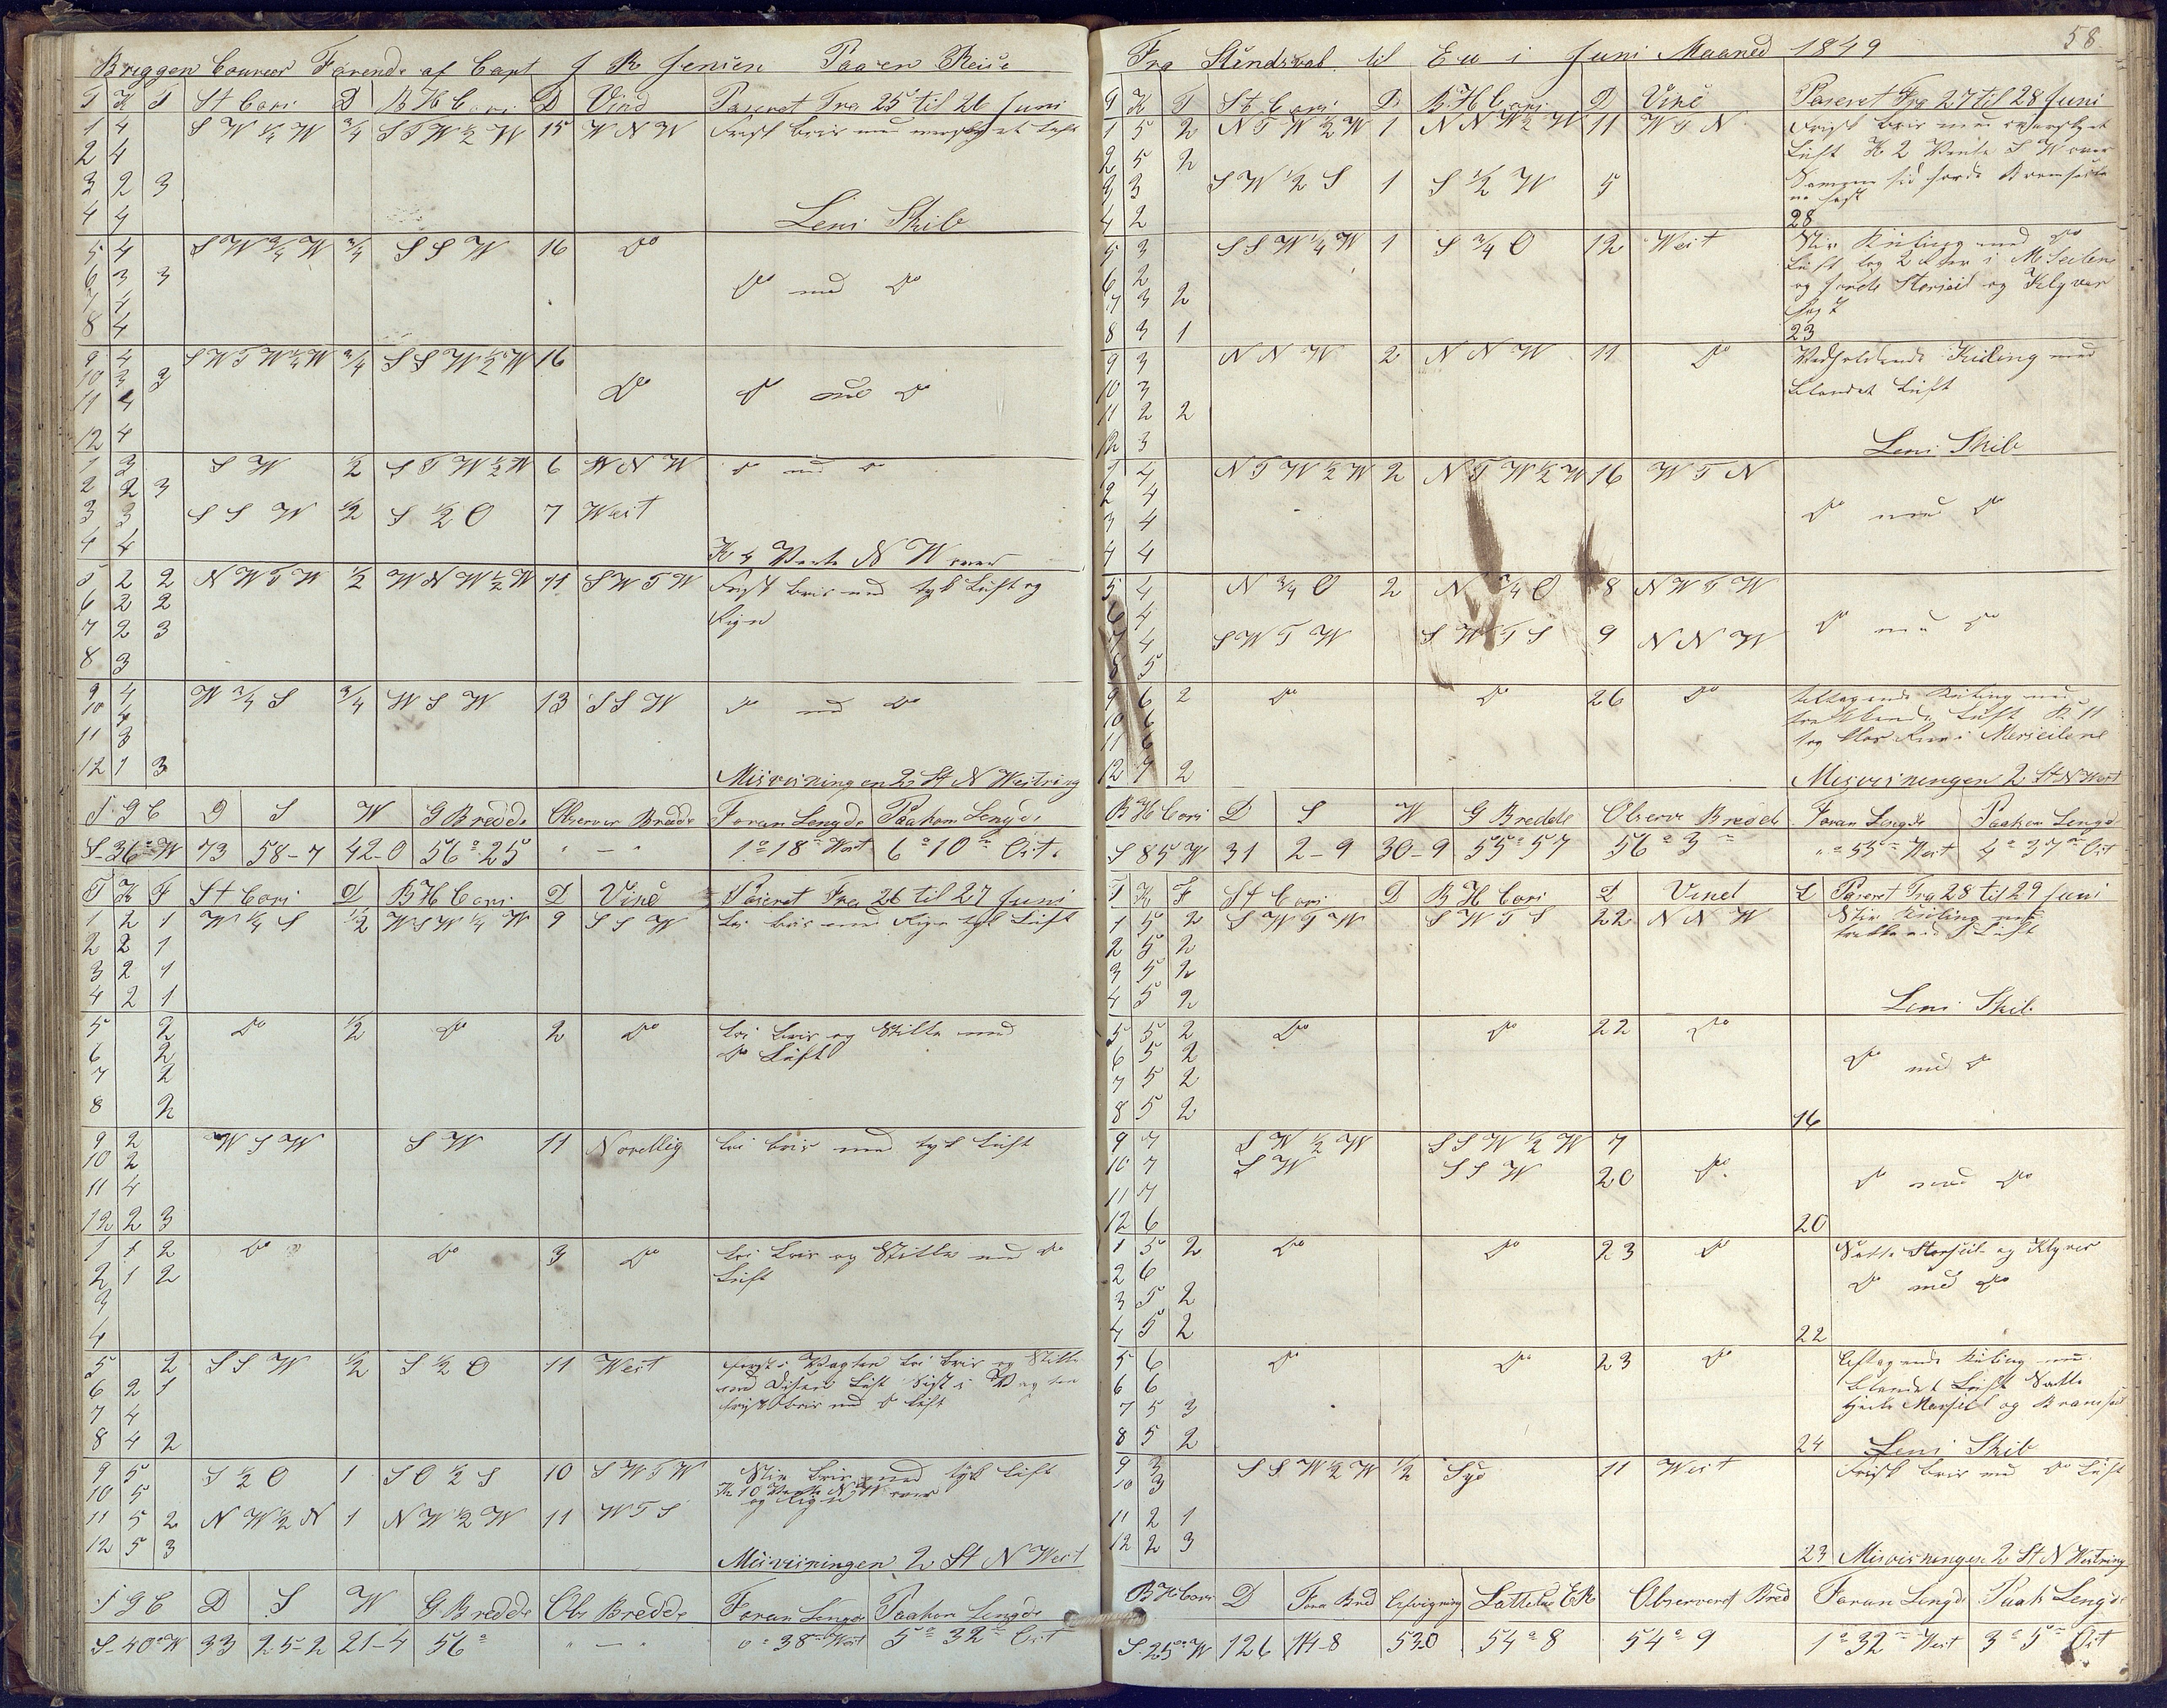 Briggen Coureer Førende af Capt J R Jensen Paa en Reise
T K F St Cors D B H Cors D Vind Paseret Fra 25 til 26 Juni
1 4 S W ½ W ¾ S T W ½ W 15 W N W Frisk bris med overskyet Luft
2 4
3 2 3
4 4 Lens Skib
5 4 ¾ S S W 16 Do
6 3 3 Do med Do
7 4
8 4
9 4 ¾ 16
10 3 3 Do Do med Do
11 4
12 4
1 3 S W ½ S T W ½ W 6 W N W Do med Do
2 2 3
3 3 S S W ½ S ½ O 7 West
4 4 K 4 Vente N W over
5 2 2 N W T W ½ W N W ½ W 11 S W T W Frisk bris med tyk Luft og
6 2 2 Rign
7 2 3
8 3
9 4 W ¾ S ¾ W S W 13 S S W Do med Do
10 4
11 3
12 1 3 Misvisningen 2 St N Westring
S g C D S W G Bredde Observer Bredde Foran Lengde Paakom Lengde
S-36°-W 73 58-7 42-0 56°25 " — " 1°18 West 6°10 Ost
T K F St Cors D B H Cors D Vind Paseret Fra 26 til 27 Juni
1 2 1 W ¼ S ½ W S W ¼ W 9 S S W Lei bris med Rign tyk Luft
2 2 1
3 2 1
4 2 1
5 2 Do ½ Do 2 Do Lei bris og Stille med
6 2 Do Luft
7 2
8 2
9 2 W S W S W 11 Nordlig Lei bris med tyk Luft
10 2
11 4
12 2 3
1 1 2 Do Do 3 Do Lei bris og Stille med Do
2 1 2 Luft
3
4
5 2 S S W ½ S ½ O 11 West først i Vagten Lei bris og Stille
6 2 1 med Disen Luft Sist i Vagten
7 4 frisk bris med Do Luft
8 4 2
9 5 S ½ O 1 S O ½ S 10 S W T W Stiv bris med tyk Luft
10 5 K 10 Vente N W over og Rign
11 5 2 N W ½ N 1 N W ½ W 11 W T S
12 5 3 Misvisningen 2 St N West
S g C D S W G Bredde Obs Bredde Foran Lengde Paakom Lengde
S-40°W 33 25-2 21-4 56° " — " 0°38 West 5°32 Ost
58
Fra Stindsval til Eu i Juni Maaned 1849
T K F St Cors D B H Cors D Vind Paseret Fra 27 til 28 Juni
1 5 2 N T W ½ W 1 N N W ½ W 11 W T N Frisk bris med overskyet
2 5 2 Luft K 2 Vente S W over
3 3 S W ½ S 1 S ½ W 5
4 2 28
5 3 S S W ¼ W 1 S ¾ O 12 West Stiv Kuling med Do
6 2 Luft tog 2 i M Seilene
7 3 2 og Storseil og Klyver
8 3 1 23
9 3 N N W 2 N N W 11 Do Vedholdende Kuling med
10 3 blandet Luft
11 2 2
12 3 Lens Skib
1 4 N T W ½ W 2 N T W ½ W 16 W T N
2 4
3 4 Do med Do
4 4
5 4 N ¾ O 2 N ¾ O 8 N W T W
6 4
7 4 S W T W S W T S 9 N N W Do med Do
8 5
9 6 2 Do Do 26 Do tiltagende Kuling med
10 6 Luft K 11
11 6 tog i Merseilene
12 7 2 Misvisningen 2 St N West
B H Cors D S W G Bredde Observ Bredde Foran Lengde Paakom Lengd
S 85 W 31 2-9 30-9 55°57 56°3 "°55 West 4°37 Ost
T K F St Cors D B H Cors D Vind L Paseret Fra 28 til 29 Juni
1 5 2 S W T W S W T S 22 N N W Stiv Kuling med
2 5 2 Luft
3 5 2
4 5 2 Lens Skib
5 5 2 Do Do 22 Do
6 5 2 Do med Do
7 5 2
8 5 2 16
9 7 S W ½ W S S W ½ W 7
10 7 S W S S W 20 Do
11 7 Do med Do
12 6 20
1 5 2 Do Do 23 Do Satte Storseil og Klyver
2 6 Do med Do
3 5 2
4 5 2 22
5 6 Do Do 23 Do Aftagende Kuling med
6 6 blandet Luft Satte
7 5 3 Mersseil og Bramseil
8 5 2 24 Lens Skib
9 3 S S W ½ W ½ Syd 11 West Frisk bris med Do Luft
10 3
11 2 1
12 2 3 23 Misvisningen 2 St N Westring
B H Cors D Fora Bred Afvigning Observeret Bred Foran Lengde Paak Lengde
S-25°-W 126 114-8 530 54°8 54°9 1°32 West 3°5 Ost